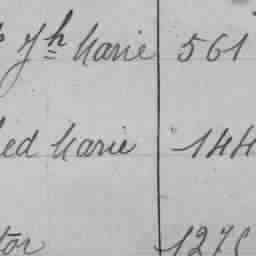 Jh Marie 561
ed Marie 144
tor 1275